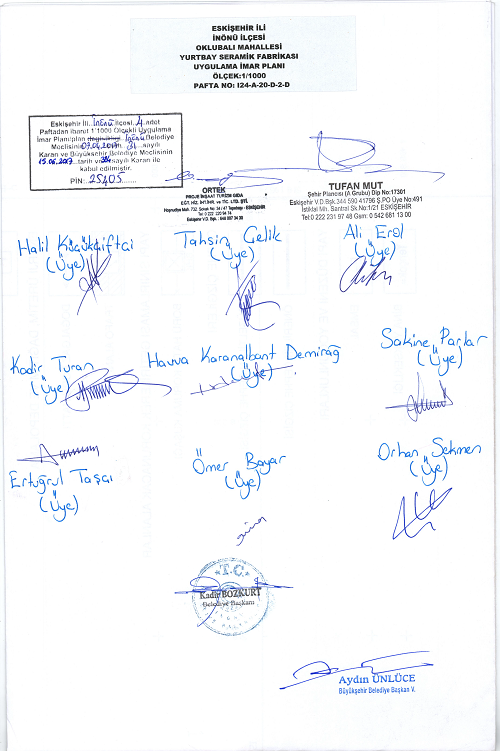 ESKİŞEHİR İLİ
İNÖNÜ İLÇESİ
OKLUBALI MAHALLESİ
YURTBAY SERAMİK FABRİKASI
UYGULAMA İMAR PLANI
ÖLÇEK:1/1000
PAFTA NO: I24-A-20-D-2-D
Eskişehir İli, İnönü İlçesi, 4 adet
Paftadan ibaret 1/1000 Ölçekli Uygulama
İmar Planı/plan İnönü Belediye
Meclisinin 07.04.2017 31 sayılı
Kararı ve Büyükşehir Belediye Meclisinin
15.06.2017 tarih ve sayılı Kararı ile
kabul edilmiştir.
PİN: 25405
ORTEK
PROJE İNŞAAT TURİZM GIDA
EĞT. HİZ. İHR. ve TİC. LTD. ŞTİ.
TUFAN MUT
Şehir Plancısı (A Grubu) Dip No:17301
Eskişehir V.D.Bşk.344 590 41796 Ş.PO Üye No:491
İstiklal Mh. Santral Sk.No:1/21 ESKİŞEHİR
Tel:0 222 231 97 48 Gsm: 0 542 661 13 00
Halil Küçükçiftçi
(Üye)
Tahsin Çelik
(Üye)
Ali Erol
(Üye)
Kadir Turan
(Üye)
Havva Karanalbant Demirağ
(Üye)
Sakine Parlar
(Üye)
Ertuğrul Taşçı
(Üye)
Ömer Bayar
(Üye)
Orhan Sekmen
(Üye)
T.C.
Kadir BOZKURT
Belediye Başkanı
Aydın ÜNLÜCE
Büyükşehir Belediye Başkan V.